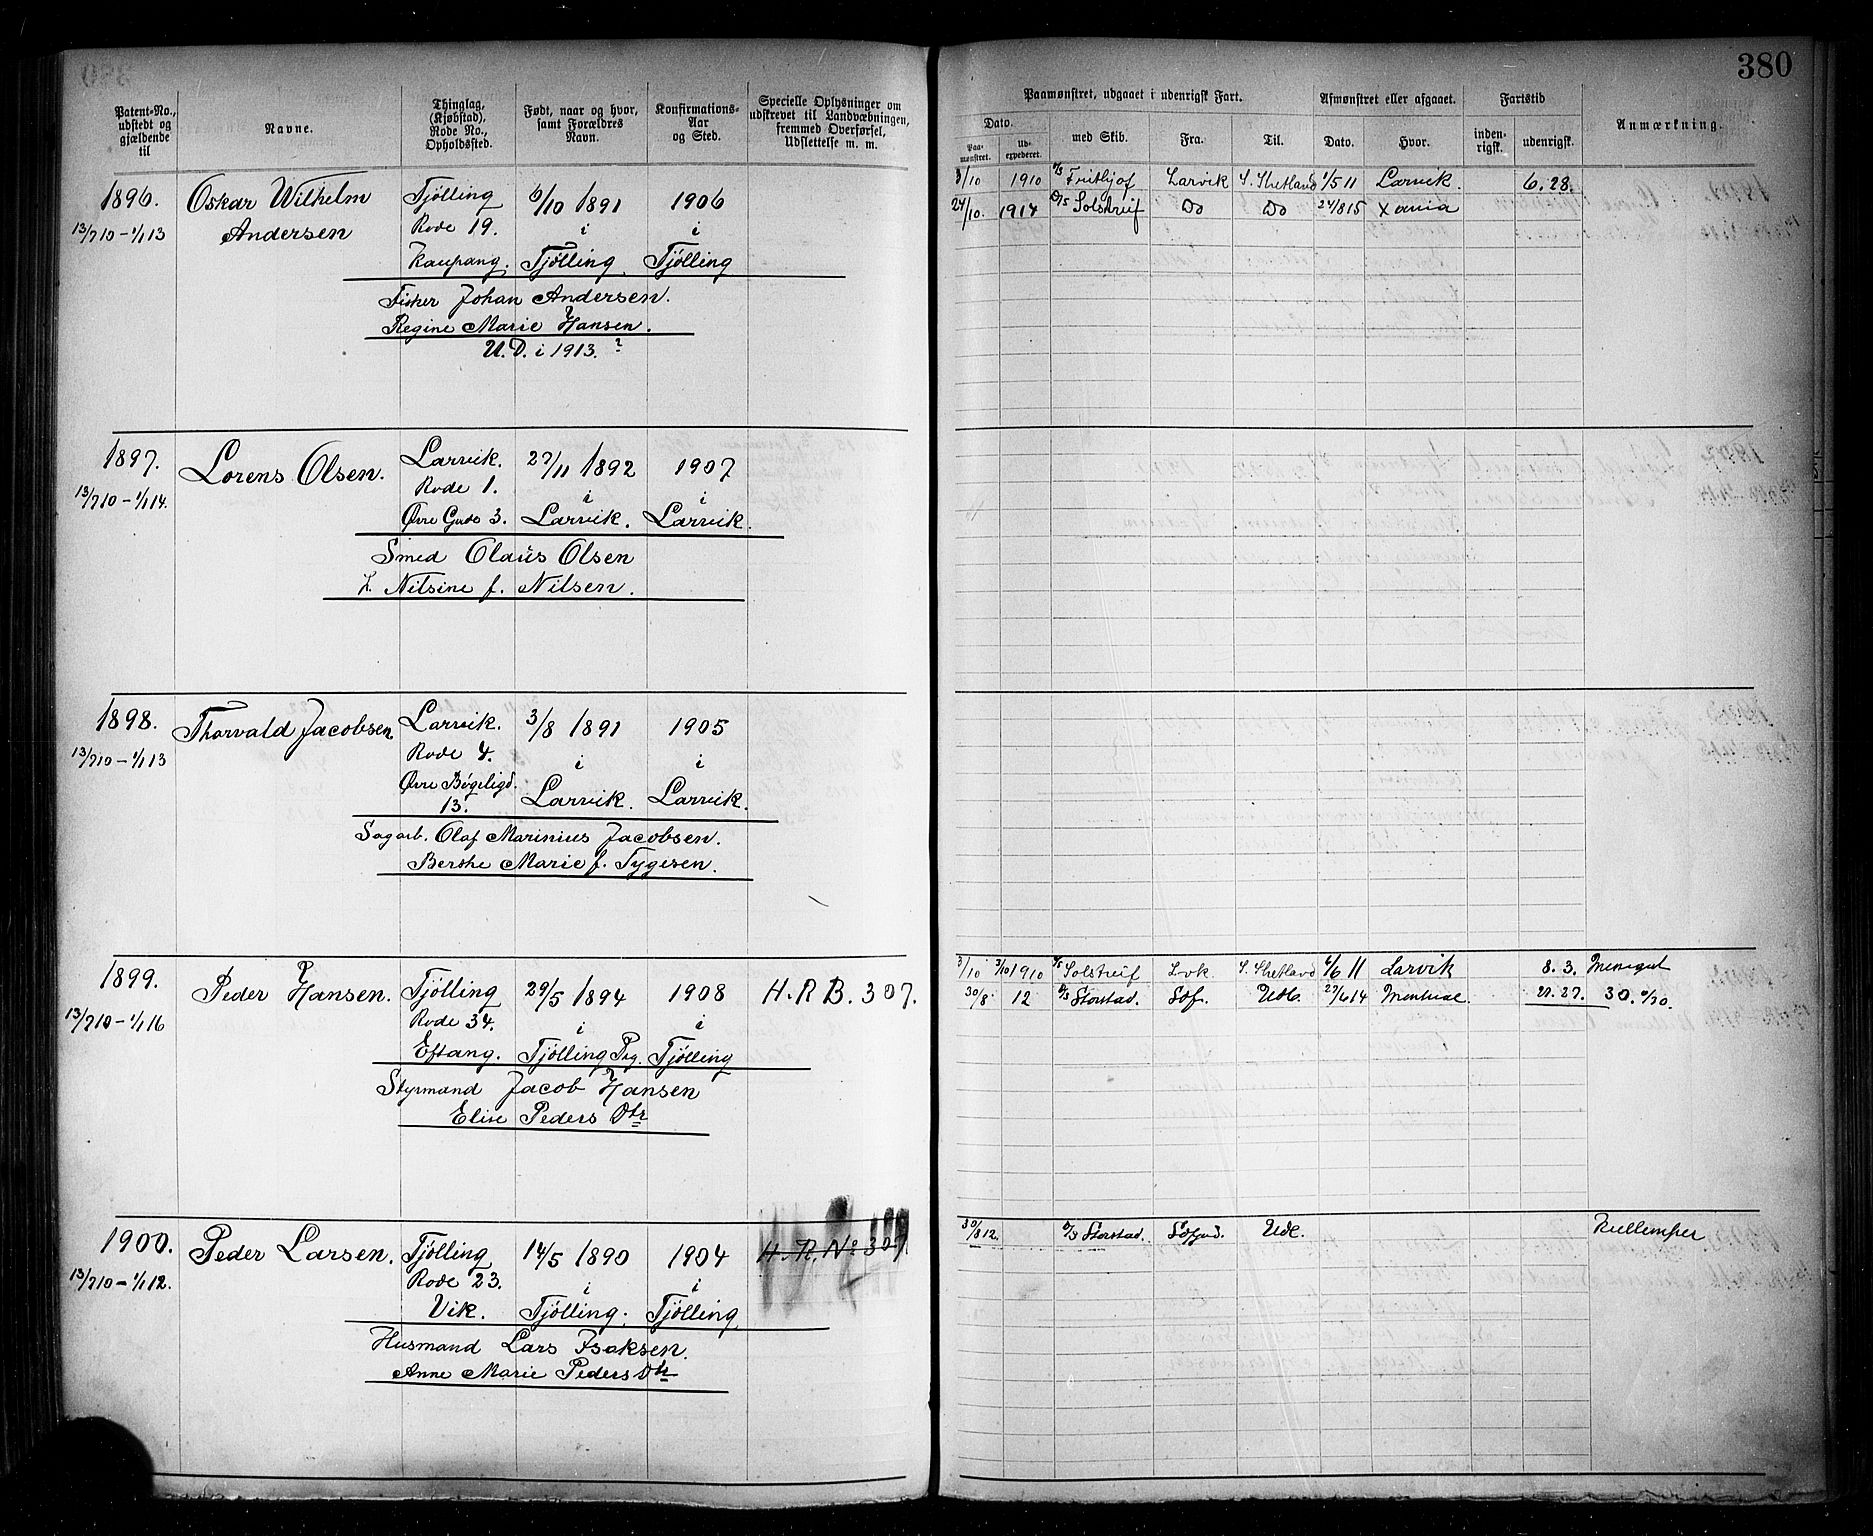 380
Patent-No., udstedt og gjældende til
Navne.
Thinglag, (Kjøbstad), Rode No., Opholdssted.
Født, naar og hvor, samt Forældres Navn.
Konfirmations-Aar og Sted.
Specielle Oplysninger om udskrevet til Landvæbningen, fremmed Overførsel, Udslettelse m. m.
Paamønstret, udgaaet i udenrigsk Fart.
Dato.
Paa-mønstret.
Ud-expederet.
med Skib.
Fra.
Til.
Afmønstret eller afgaaet.
Dato.
Hvor.
Fartstid
inden-rigsk.
udenrigsk.
Anmærkning.
1896. Oskar Wilhelm Tjølling 6/10 1891 1906
13/7 10 - 1/1 13 Andersen Rode 19. i i
Kaupang. Tjølling. Tjølling
Fisker Johan Andersen.
Regine Marie Hansen.
U. D. i 1913. ?
3/10 1910 Fridtjof Larvik S. Shetland 1/5 11 Larvik. 6. 28.
24/10. 1914 D/S Solstreif Do Do 24/8 15 Xania
1897. Lorens Olsen. Larvik. 27/11 1892 1907
13/7 10 - 1/1 14. Rode 1. i i
Øvre Gade 3. Larvik. Larvik.
Smed Olaus Olsen
H. Nilsine f. Nilsen.
1898. Thorvald Jacobsen Larvik. 3/8 1891 1905
13/7 10 - 1/1 13 Rode 4. i i
Øvre Bøgeligd. 13. Larvik. Larvik.
Sagarb. Olaf Marinius Jacobsen.
Berthe Marie f. Tygesen.
1899. Peder Hansen. Tjølling 29/5 1894 1908 H. R B. 307.
13/7 10 - 1/1 16 Rode 34. i i
Eftang. Tjølling Pg. Tjølling
Styrmand Jacob Hansen
Elise Peders Dtr
3/10 3/10 1910 Solstreif Lvk. S. Shetland 1/6 11 Larvik 8. 3.
30/8 12 Storstad. Sdf. Udl. 27/6 14 27. 27. 30.
1900. Peder Larsen. Tjølling 14/5 1890 1904 H. R. No 307
13/7 10 - 1/1 12. Rode 23. i i
Vik. Tjølling. Tjølling
Husmand Lars Isaksen.
Anne Marie Peders Dtr
30/8 12. Storstad. Sdfjord. Udl. Kullemper